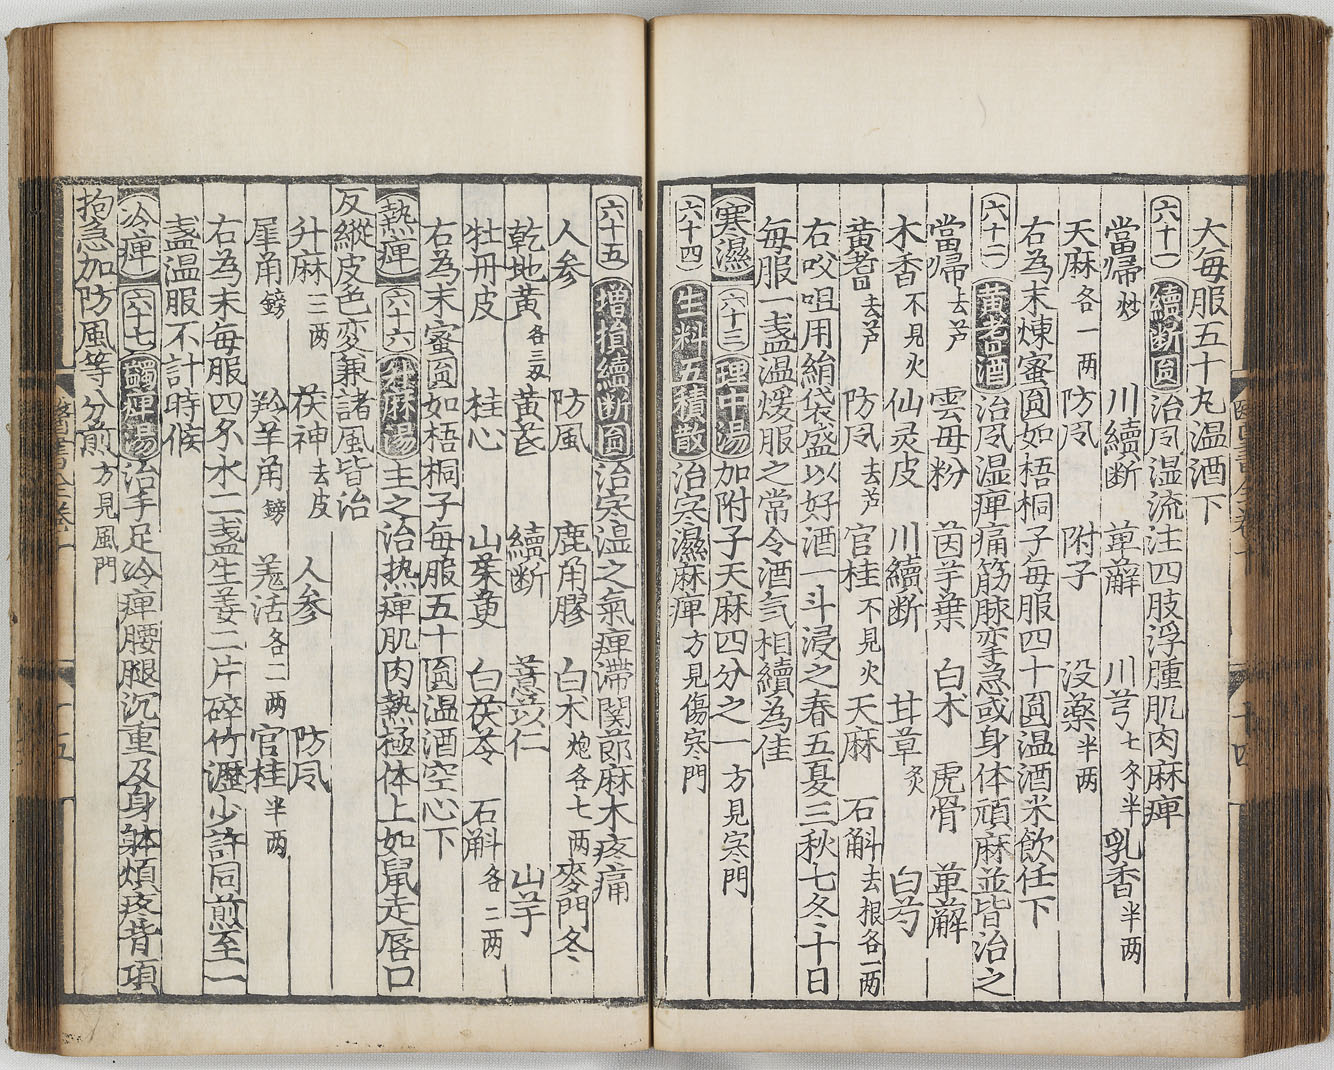 大每服五十丸温酒下
六十一 續断圎 治风湿流注四肢浮腫肌肉麻痺
當歸炒 川續断 萆薢 川芎七夕半 乳香半两
天麻各一两 防风 附子 没藥半两
右為末煉蜜圎如梧桐子每服四十圎温酒米飲任下
六十二 黄耆酒 治风湿痺痛筋脉挛急或身体頑麻並皆治之
當歸去芦 雲母粉 茵芋葉 白术 虎骨 萆薢
木香不見火 仙灵皮 川續断 甘草炙 白芍
黄耆去芦 防风去芦 官桂不見火 天麻 石斛去根各一两
右㕮咀用絹袋盛以好酒一斗浸之春五夏三秋七冬十日
每服一盞温煖服之常令酒氣相續為佳
寒濕 六十三 理中湯 加附子天麻四分之一方見寒門
六十四 生料五積散 治寒濕麻痺方見傷寒門
六十五 增損續断圎 治寒湿之氣痺滞関節麻木疼痛
人参 防風 鹿角膠 白术炮各七两 麥門冬
乾地黄各三两 黄芪 續断 薏苡仁 山芋
牡丹皮 桂心 山茱萸 白茯苓 石斛各二两
右為末蜜圎如梧桐子每服五十圎温酒空心下
熱痺 六十六 升麻湯 主之治热痺肌肉熱極体上如鼠走唇口
反縱皮色变兼諸風皆治
升麻三两 茯神去皮 人参 防风
犀角鎊 羚羊角鎊 羗活各二两 官桂半两
右為末每服四夕水二盞生姜二片碎竹瀝少許同煎至一
盞温服不計時候
冷痺 六十七 蠲痺湯 治手足冷痺腰腿沉重及身躰煩疼背項
拘急加防風等分煎方見風門
十五